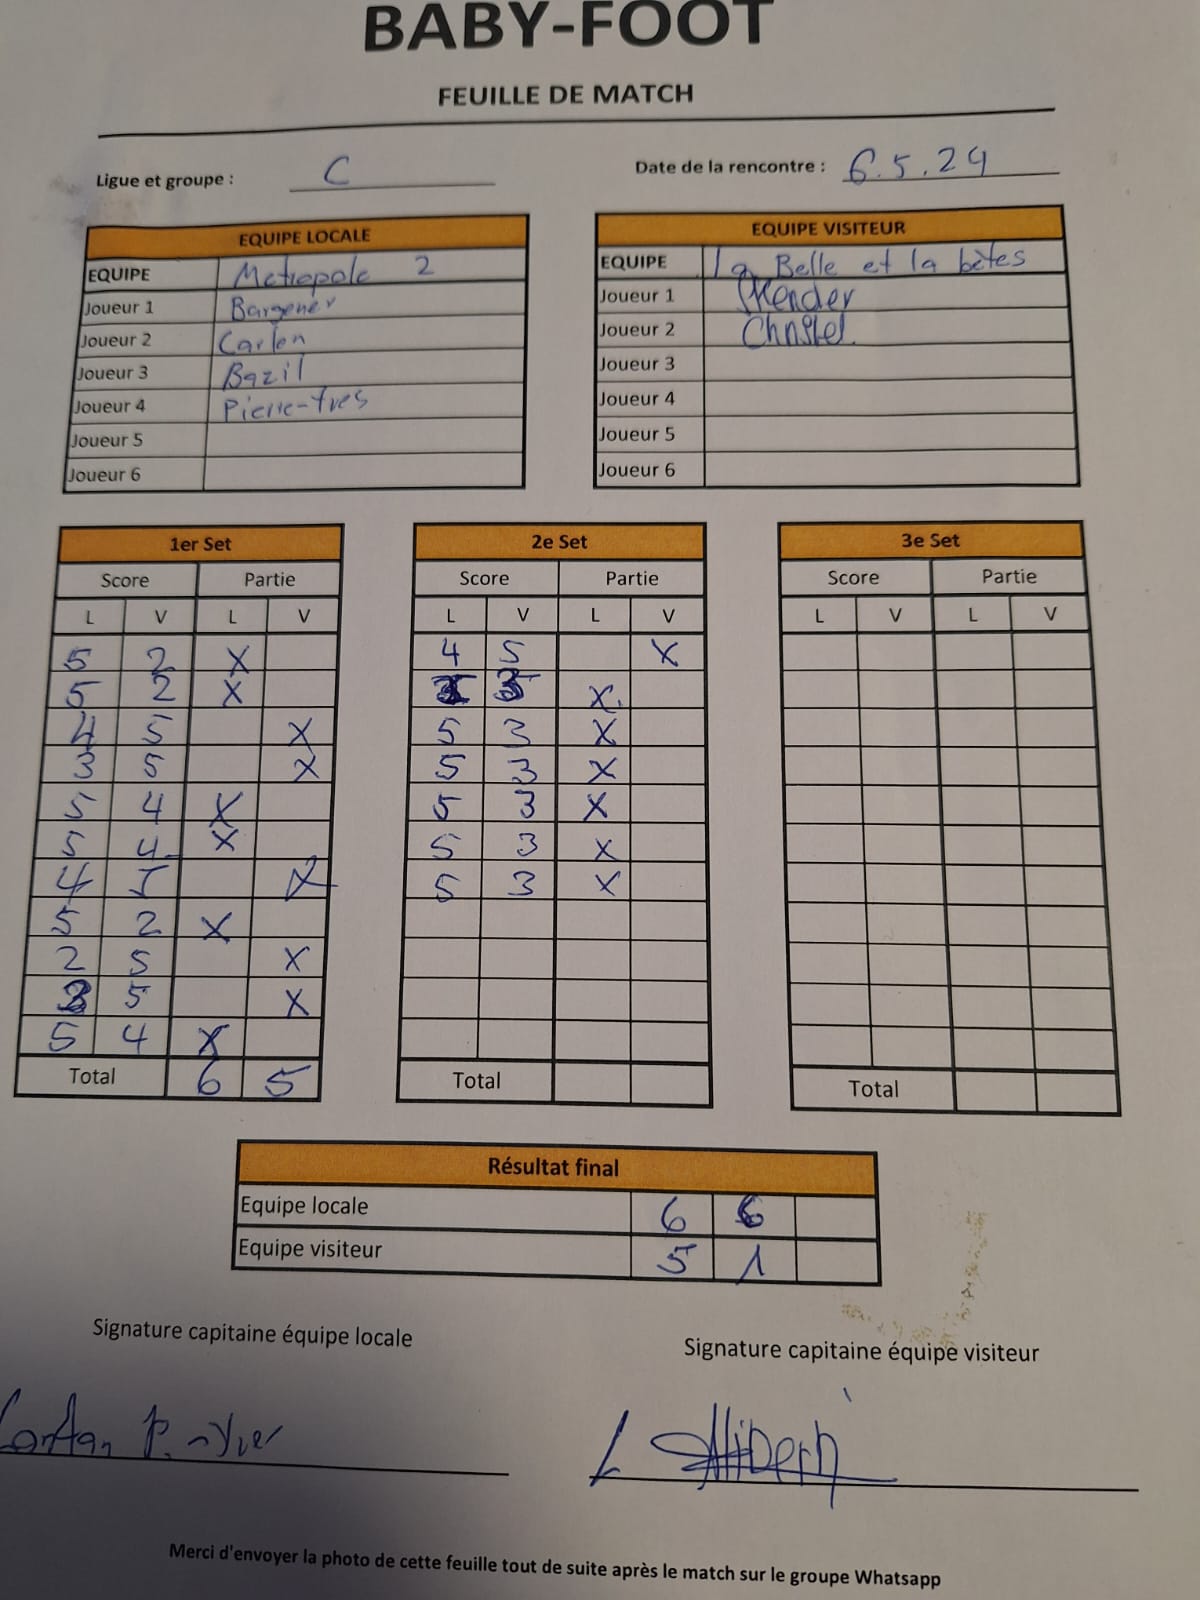 BABY-FOOT
FEUILLE DE MATCH
Ligue et groupe : C
Date de la rencontre : 6.5.24
EQUIPE LOCALE
EQUIPE Metropole 2
Joueur 1 Bargener
Joueur 2 Carlen
Joueur 3 Bazil
Joueur 4 Pierre-Yves
Joueur 5
Joueur 6
EQUIPE VISITEUR
EQUIPE La Belle et la bêtes
Joueur 1 Skender
Joueur 2 Christel
Joueur 3
Joueur 4
Joueur 5
Joueur 6
1er Set
Score Partie
L V L V
5 2 X
5 2 X
4 5 X
3 5 X
5 4 X
5 4 X
4 5 X
5 2 X
2 5 X
3 5 X
5 4 X
Total 6 5
2e Set
Score Partie
L V L V
4 5 X
3 X
5 3 X
5 3 X
5 3 X
5 3 X
5 3 X
Total
3e Set
Score Partie
L V L V
Total
Résultat final
Equipe locale 6 6
Equipe visiteur 5 1
Signature capitaine équipe locale
Signature capitaine équipe visiteur
Merci d'envoyer la photo de cette feuille tout de suite après le match sur le groupe Whatsapp